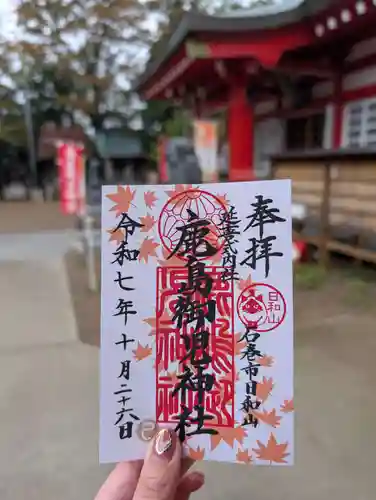 奉拝
延喜式内社
日和山
石巻市日和山
鹿島御児神社
令和七年十月二十六日